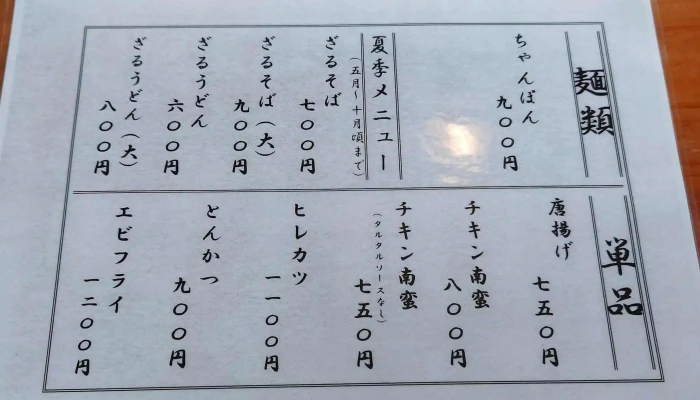 麺類
ちゃんぽん
九〇〇円
夏季メニュー
(五月~十月頃まで)
ざるそば
七〇〇円
ざるそば(大)
九〇〇円
ざるうどん
六〇〇円
ざるうどん(大)
八〇〇円
単品
唐揚げ
七五〇円
チキン南蛮
八〇〇円
チキン南蛮
(タルタルソースなし)
七五〇円
ヒレカツ
一一〇〇円
とんかつ
九〇〇円
エビフライ
一二〇〇円